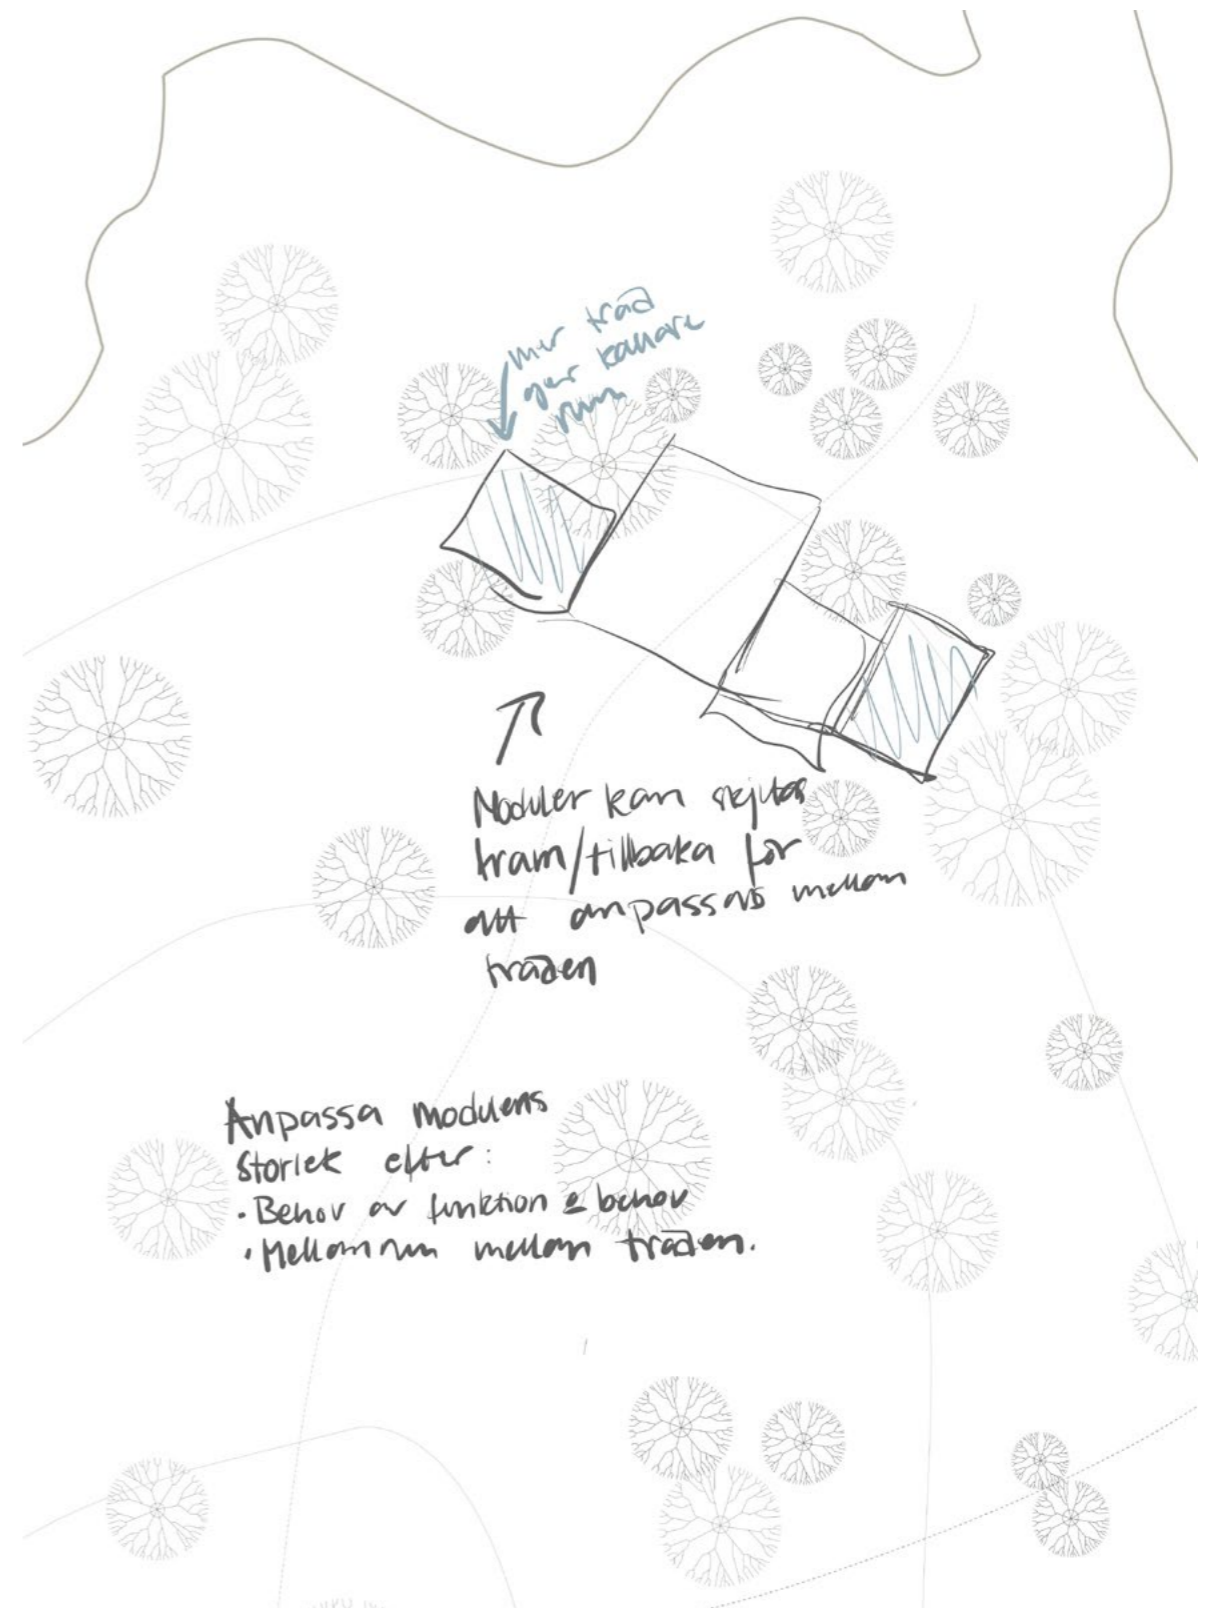 mer träd
ger kallare
rum
Moduler kan skjutas
fram/tillbaka för
att anpassas mellan
träden
Anpassa modulens
storlek efter:
• Behov av funktion & behov
• Mellanrum mellan träden.